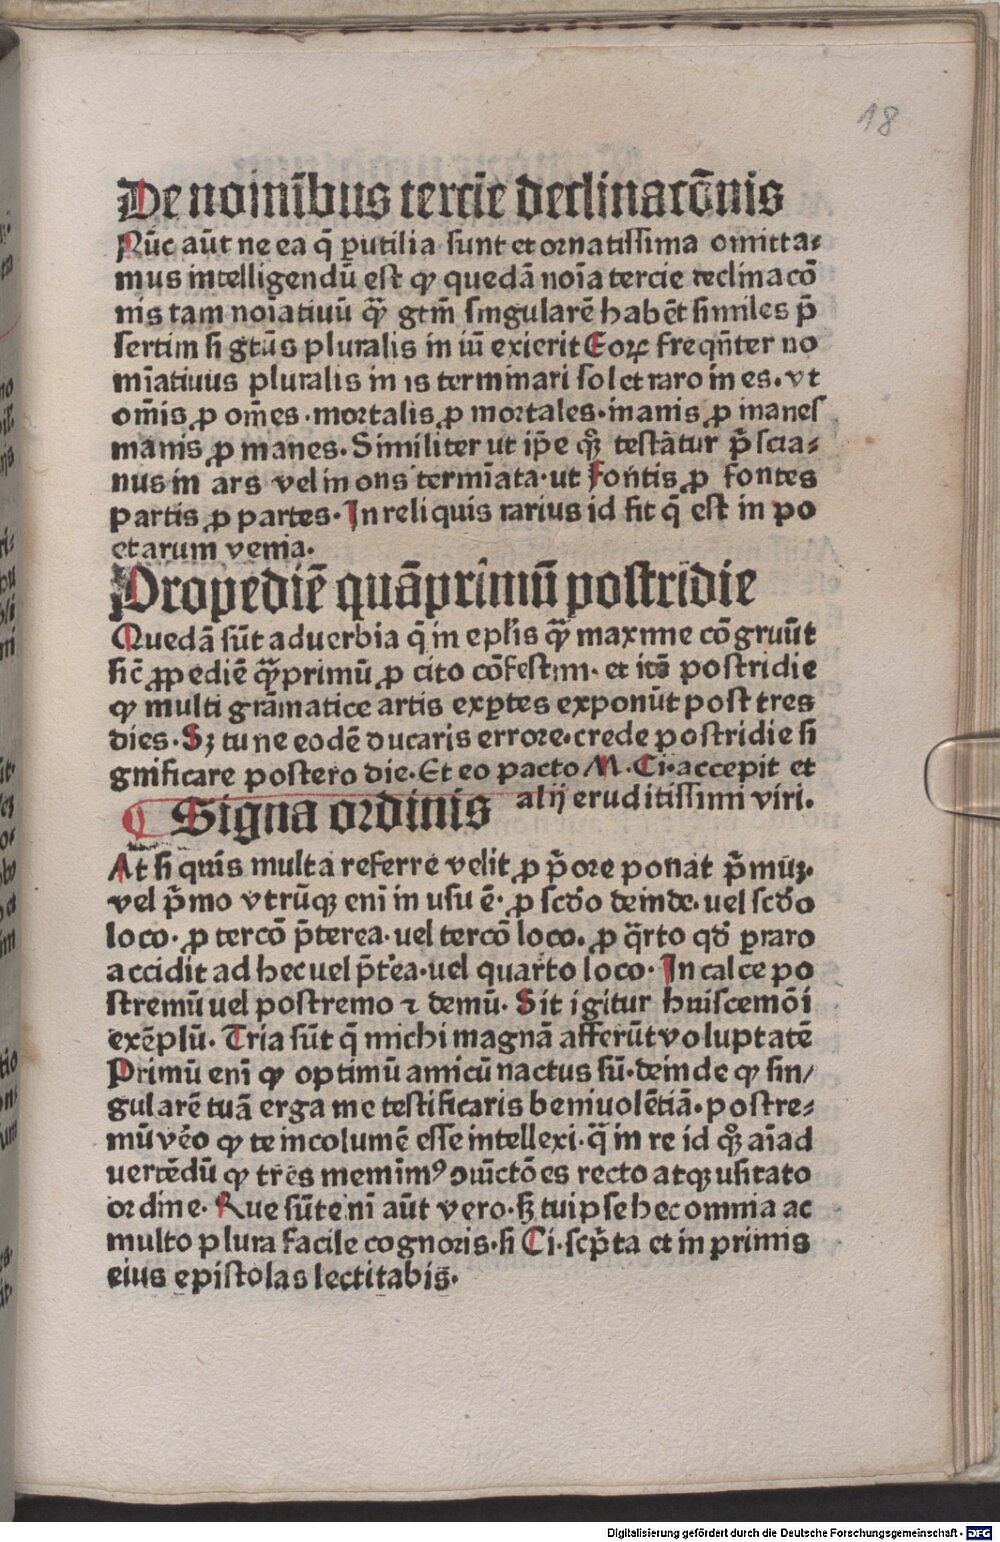 18
De nominibus tercie declinacōnis
Nūc aūt ne ea q̄ ꝑutilia sunt et ornatissima omitta⸗
mus intelligendū est ꝙ quedā noīa tercie declinacō
nis tam noīatiuū ꝙ̄ gtm̄ singularē habēt similes p̄
sertim si gtūs pluralis in iū exierit Eoꝝ freqn̄ter no
mīatiuus pluralis in is terminari solet raro in es. vt
om̄is ꝓ om̄es · mortalis ꝓ mortales · inanis ꝓ inanes
manis ꝓ manes. Similiter ut ip̄e qꝫ testātur p̄scia⸗
nus in ars vel in ons termīata · ut Fontis ꝓ fontes
partis ꝓ partes · In reliquis rarius id fit q̄ est in po
etarum venia.
Propediē quāprimū postridie
Quedā sūt aduerbia q̄ in ep̄lis ꝙ̄ maxime cōgruūt
sic̄ ꝓpediē ꝙ̄primū ꝓ cito cōfestim · et itē postridie
ꝙ multi grāmatice artis exꝑtes exponūt post tres
dies · Sꝫ tu ne eodē ducaris errore · crede postridie si
gnificare postero die · Et eo pacto M · Ci · accepit et
alij eruditissimi viri.
Signa ordinis
At si quis multa referre velit ꝓ p̄ore ponat p̄muꝫ ·
vel p̄mo vtrūqꝫ enī in usu ē · ꝓ scd̄o deinde · uel scd̄o
loco · ꝓ tercō p̄terea · uel tercō loco. ꝓ q̄rto qd̄ ꝑraro
accidit ad hec uel p̄t'ea · uel quarto loco · In calce po
stremū uel postremo ⁊ demū · Sit igitur huiscemōi
exēplū · Tria sūt q̄ michi magnā afferūt voluptatē
Primū enī ꝙ optimū amicū nactus sū · deinde ꝙ sin/
gularē tuā erga me testificaris beniuolētiā · postre⸗
mū vēo ꝙ te incolumē esse intellexi · q̄ in re id qꝫ aīad
uertēdū ꝙ tres memīmꝰ oīuictōes recto atqꝫ usitato
ordine · Que sūt enī aūt vero · sꝫ tu ipse hec omnia ac
multo plura facile cognoris · si Ci · scp̄ta et in primis
eius epistolas lectitabis ·
Digitalisierung gefördert durch die Deutsche Forschungsgemeinschaft · DFG